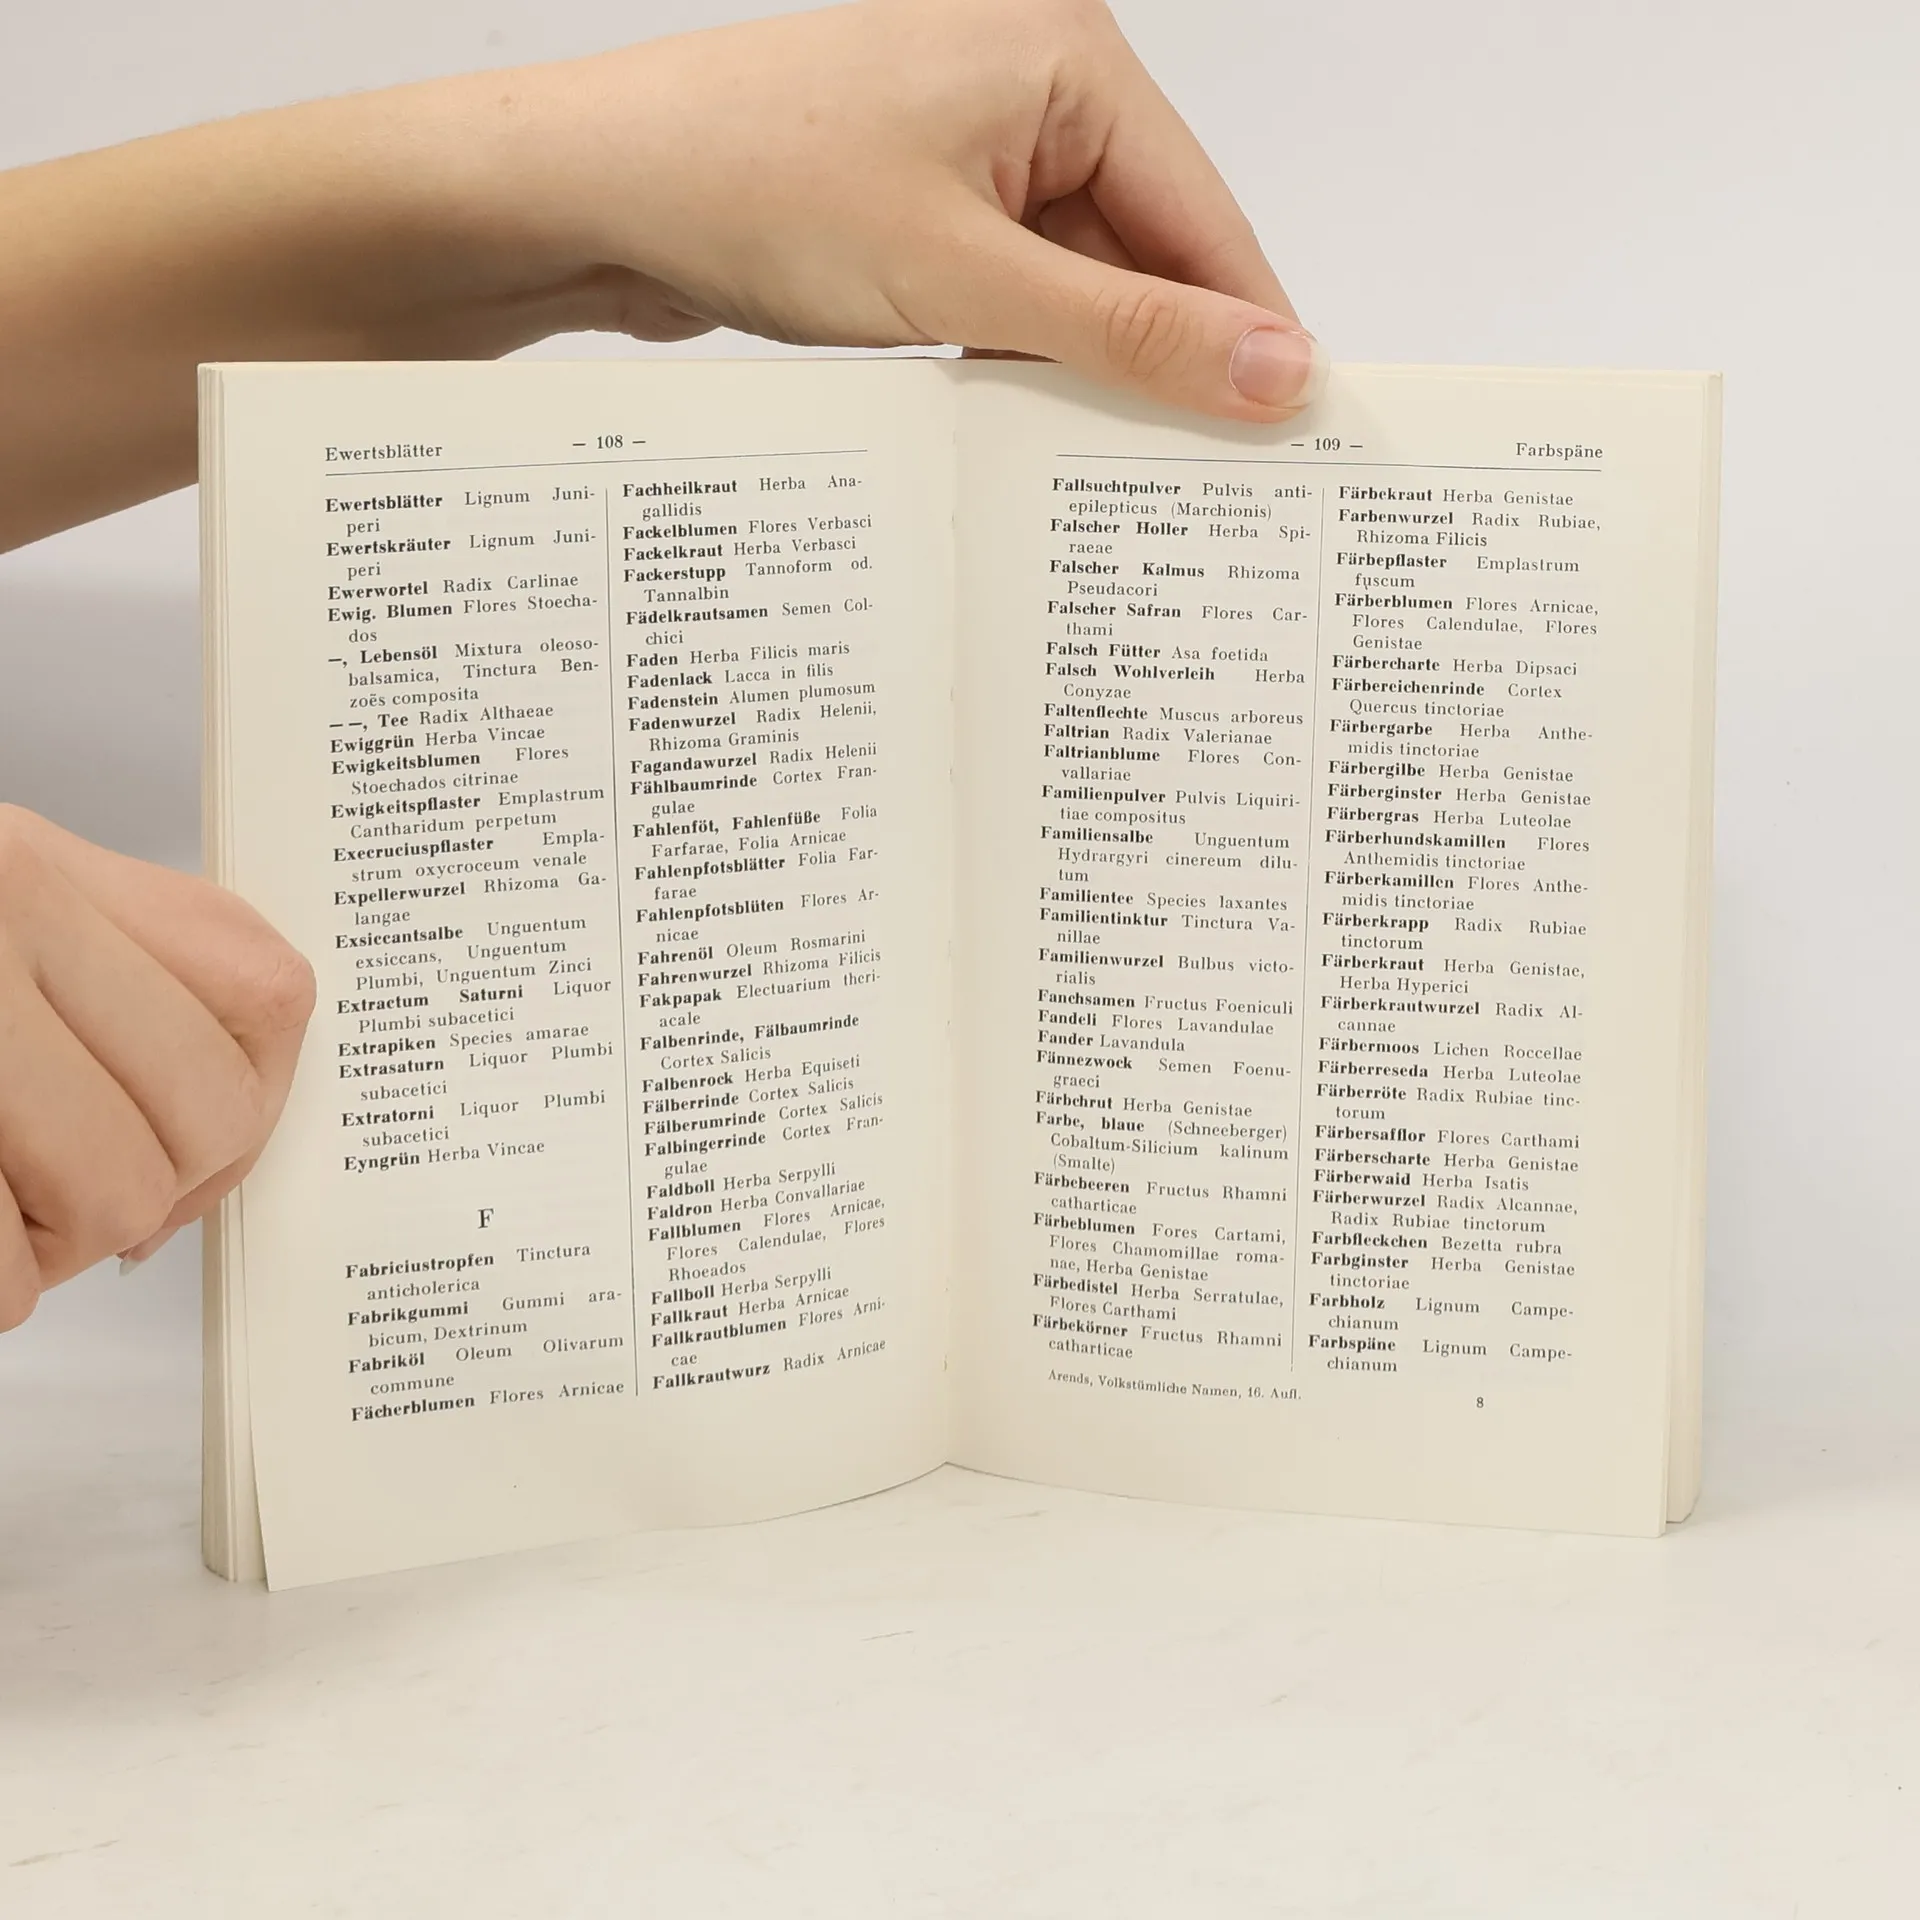 Ewertsblätter
— 108 —
Ewertsblätter Lignum Juni-
peri
Ewertskräuter Lignum Juni-
peri
Ewerwortel Radix Carlinae
Ewig. Blumen Flores Stoecha-
dos
—, Lebensöl Mixtura oleoso-
balsamica, Tinctura Ben-
zoës composita
— —, Tee Radix Althaeae
Ewiggrün Herba Vincae
Ewigkeitsblumen Flores
Stoechados citrinae
Ewigkeitspflaster Emplastrum
Cantharidum perpetum
Execruciuspflaster Empla-
strum oxycroceum venale
Expellerwurzel Rhizoma Ga-
langae
Exsiccantsalbe Unguentum
exsiccans, Unguentum
Plumbi, Unguentum Zinci
Extractum Saturni Liquor
Plumbi subacetici
Extrapiken Species amarae
Extrasaturn Liquor Plumbi
subacetici
Extratorni Liquor Plumbi
subacetici
Eyngrün Herba Vincae
F
Fabriciustropfen Tinctura
anticholerica
Fabrikgummi Gummi ara-
bicum, Dextrinum
Fabriköl Oleum Olivarum
commune
Fächerblumen Flores Arnicae
Fachheilkraut Herba Ana-
gallidis
Fackelblumen Flores Verbasci
Fackelkraut Herba Verbasci
Fackerstupp Tannoform od.
Tannalbin
Fädelkrautsamen Semen Col-
chici
Faden Herba Filicis maris
Fadenlack Lacca in filis
Fadenstein Alumen plumosum
Fadenwurzel Radix Helenii,
Rhizoma Graminis
Fagandawurzel Radix Helenii
Fählbaumrinde Cortex Fran-
gulae
Fahlenföt, Fahlenfüße Folia
Farfarae, Folia Arnicae
Fahlenpfotsblätter Folia Far-
farae
Fahlenpfotsblüten Flores Ar-
nicae
Fahrenöl Oleum Rosmarini
Fahrenwurzel Rhizoma Filicis
Fakpapak Electuarium theri-
acale
Falbenrinde, Fälbaumrinde
Cortex Salicis
Falbenrock Herba Equiseti
Fälberrinde Cortex Salicis
Fälberumrinde Cortex Salicis
Falbingerrinde Cortex Fran-
gulae
Faldboll Herba Serpylli
Faldron Herba Convallariae
Fallblumen Flores Arnicae,
Flores Calendulae, Flores
Rhoeados
Fallboll Herba Serpylli
Fallkraut Herba Arnicae
Fallkrautblumen Flores Arni-
cae
Fallkrautwurz Radix Arnicae
— 109 —
Farbspäne
Fallsuchtpulver Pulvis anti-
epilepticus (Marchionis)
Falscher Holler Herba Spi-
raeae
Falscher Kalmus Rhizoma
Pseudacori
Falscher Safran Flores Car-
thami
Falsch Fütter Asa foetida
Falsch Wohlverleih Herba
Conyzae
Faltenflechte Muscus arboreus
Faltrian Radix Valerianae
Faltrianblume Flores Con-
vallariae
Familienpulver Pulvis Liquiri-
tiae compositus
Familiensalbe Unguentum
Hydrargyri cinereum dilu-
tum
Familientee Species laxantes
Familientinktur Tinctura Va-
nillae
Familienwurzel Bulbus victo-
rialis
Fanchsamen Fructus Foeniculi
Fandeli Flores Lavandulae
Fander Lavandula
Fännezwock Semen Foenu-
graeci
Färbchrut Herba Genistae
Farbe, blaue (Schneeberger)
Cobaltum-Silicium kalinum
(Smalte)
Färbebeeren Fructus Rhamni
catharticae
Färbeblumen Fores Cartami,
Flores Chamomillae roma-
nae, Herba Genistae
Färbedistel Herba Serratulae,
Flores Carthami
Färbekörner Fructus Rhamni
catharticae
Färbekraut Herba Genistae
Farbenwurzel Radix Rubiae,
Rhizoma Filicis
Färbepflaster Emplastrum
fuscum
Färberblumen Flores Arnicae,
Flores Calendulae, Flores
Genistae
Färbercharte Herba Dipsaci
Färbereichenrinde Cortex
Quercus tinctoriae
Färbergarbe Herba Anthe-
midis tinctoriae
Färbergilbe Herba Genistae
Färberginster Herba Genistae
Färbergras Herba Luteolae
Färberhundskamillen Flores
Anthemidis tinctoriae
Färberkamillen Flores Anthe-
midis tinctoriae
Färberkrapp Radix Rubiae
tinctorum
Färberkraut Herba Genistae,
Herba Hyperici
Färberkrautwurzel Radix Al-
cannae
Färbermoos Lichen Roccellae
Färberreseda Herba Luteolae
Färberröte Radix Rubiae tinc-
torum
Färbersafflor Flores Carthami
Färberscharte Herba Genistae
Färberwaid Herba Isatis
Färberwurzel Radix Alcannae,
Radix Rubiae tinctorum
Farbfleckchen Bezetta rubra
Farbginster Herba Genistae
tinctoriae
Farbholz Lignum Campe-
chianum
Farbspäne Lignum Campe-
chianum
Arends, Volkstümliche Namen, 16. Aufl.
8